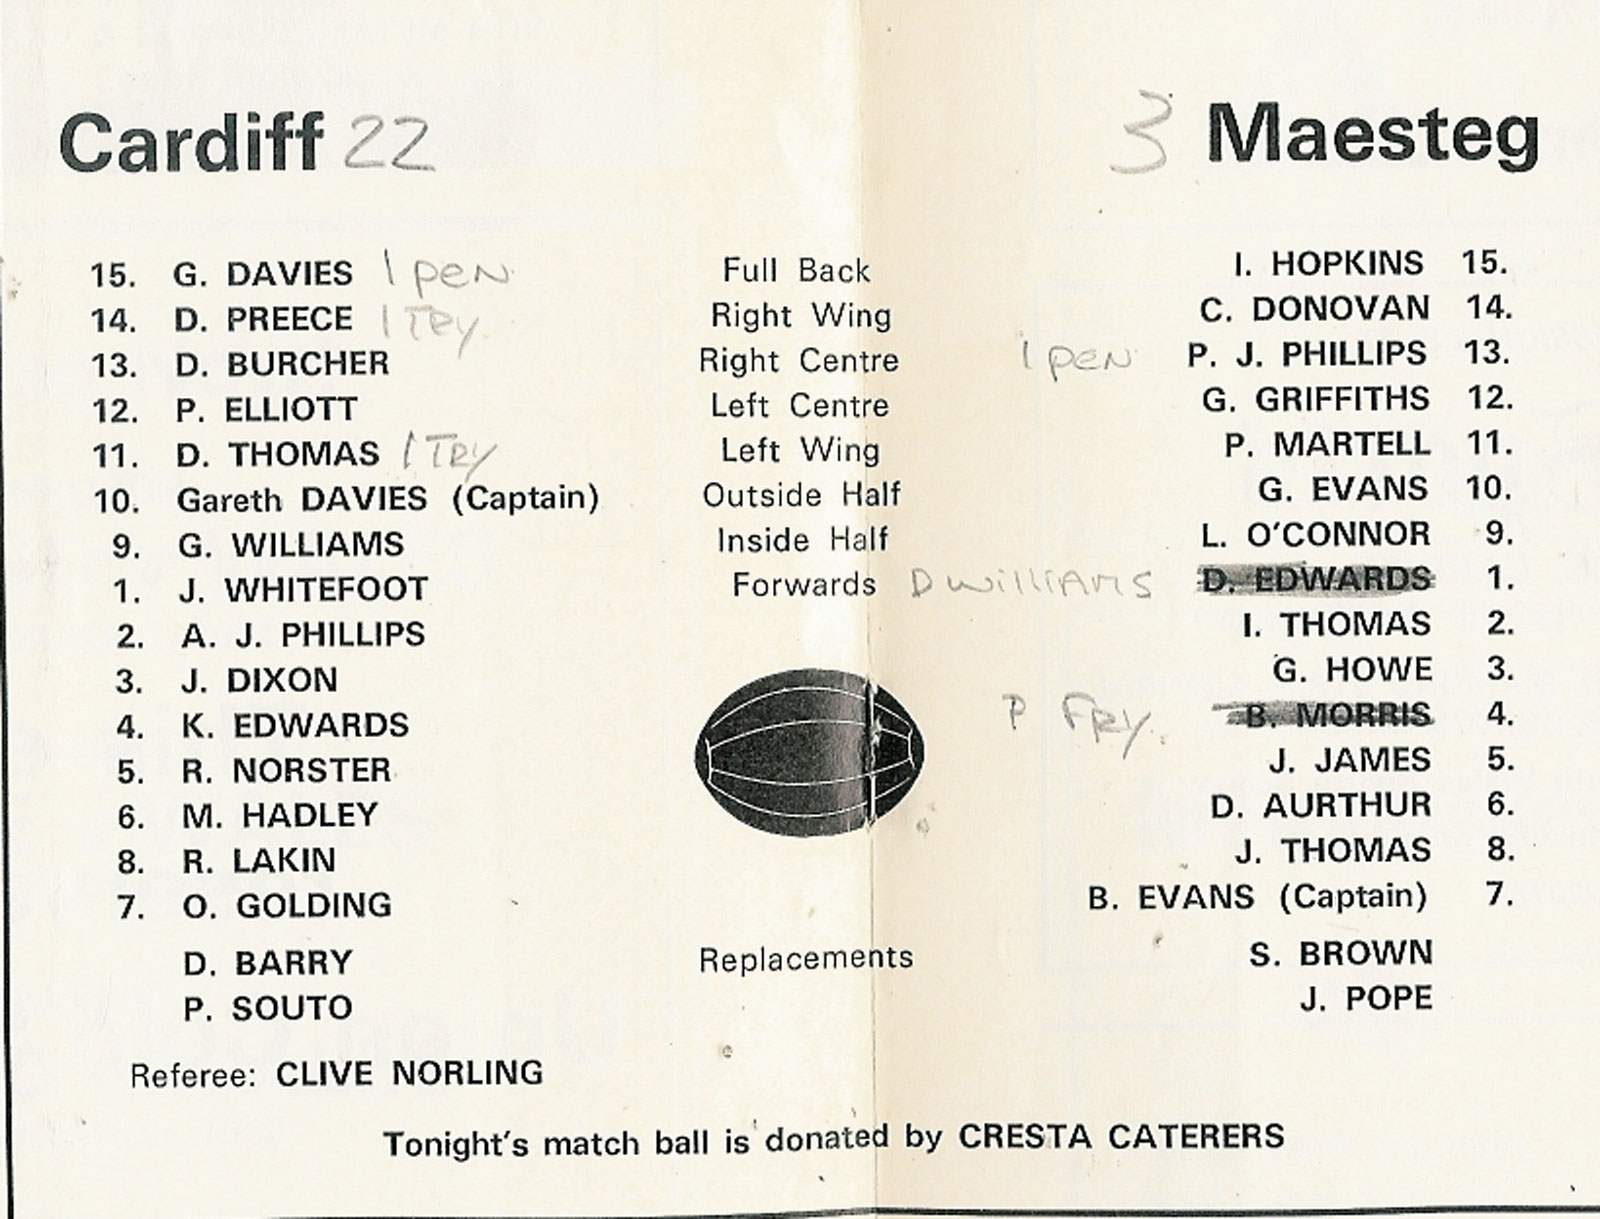 Cardiff 22 3 Maesteg
15. G. DAVIES 1 PEN Full Back I. HOPKINS 15.
14. D. PREECE 1 TRY Right Wing C. DONOVAN 14.
13. D. BURCHER Right Centre 1 PEN P. J. PHILLIPS 13.
12. P. ELLIOTT Left Centre G. GRIFFITHS 12.
11. D. THOMAS 1 TRY Left Wing P. MARTELL 11.
10. Gareth DAVIES (Captain) Outside Half G. EVANS 10.
9. G. WILLIAMS Inside Half L. O'CONNOR 9.
1. J. WHITEFOOT Forwards D WILLIAMS D. EDWARDS 1.
2. A. J. PHILLIPS I. THOMAS 2.
3. J. DIXON G. HOWE 3.
4. K. EDWARDS P FRY B. MORRIS 4.
5. R. NORSTER J. JAMES 5.
6. M. HADLEY D. AURTHUR 6.
8. R. LAKIN J. THOMAS 8.
7. O. GOLDING B. EVANS (Captain) 7.
D. BARRY Replacements S. BROWN
P. SOUTO J. POPE
Referee: CLIVE NORLING
Tonight's match ball is donated by CRESTA CATERERS